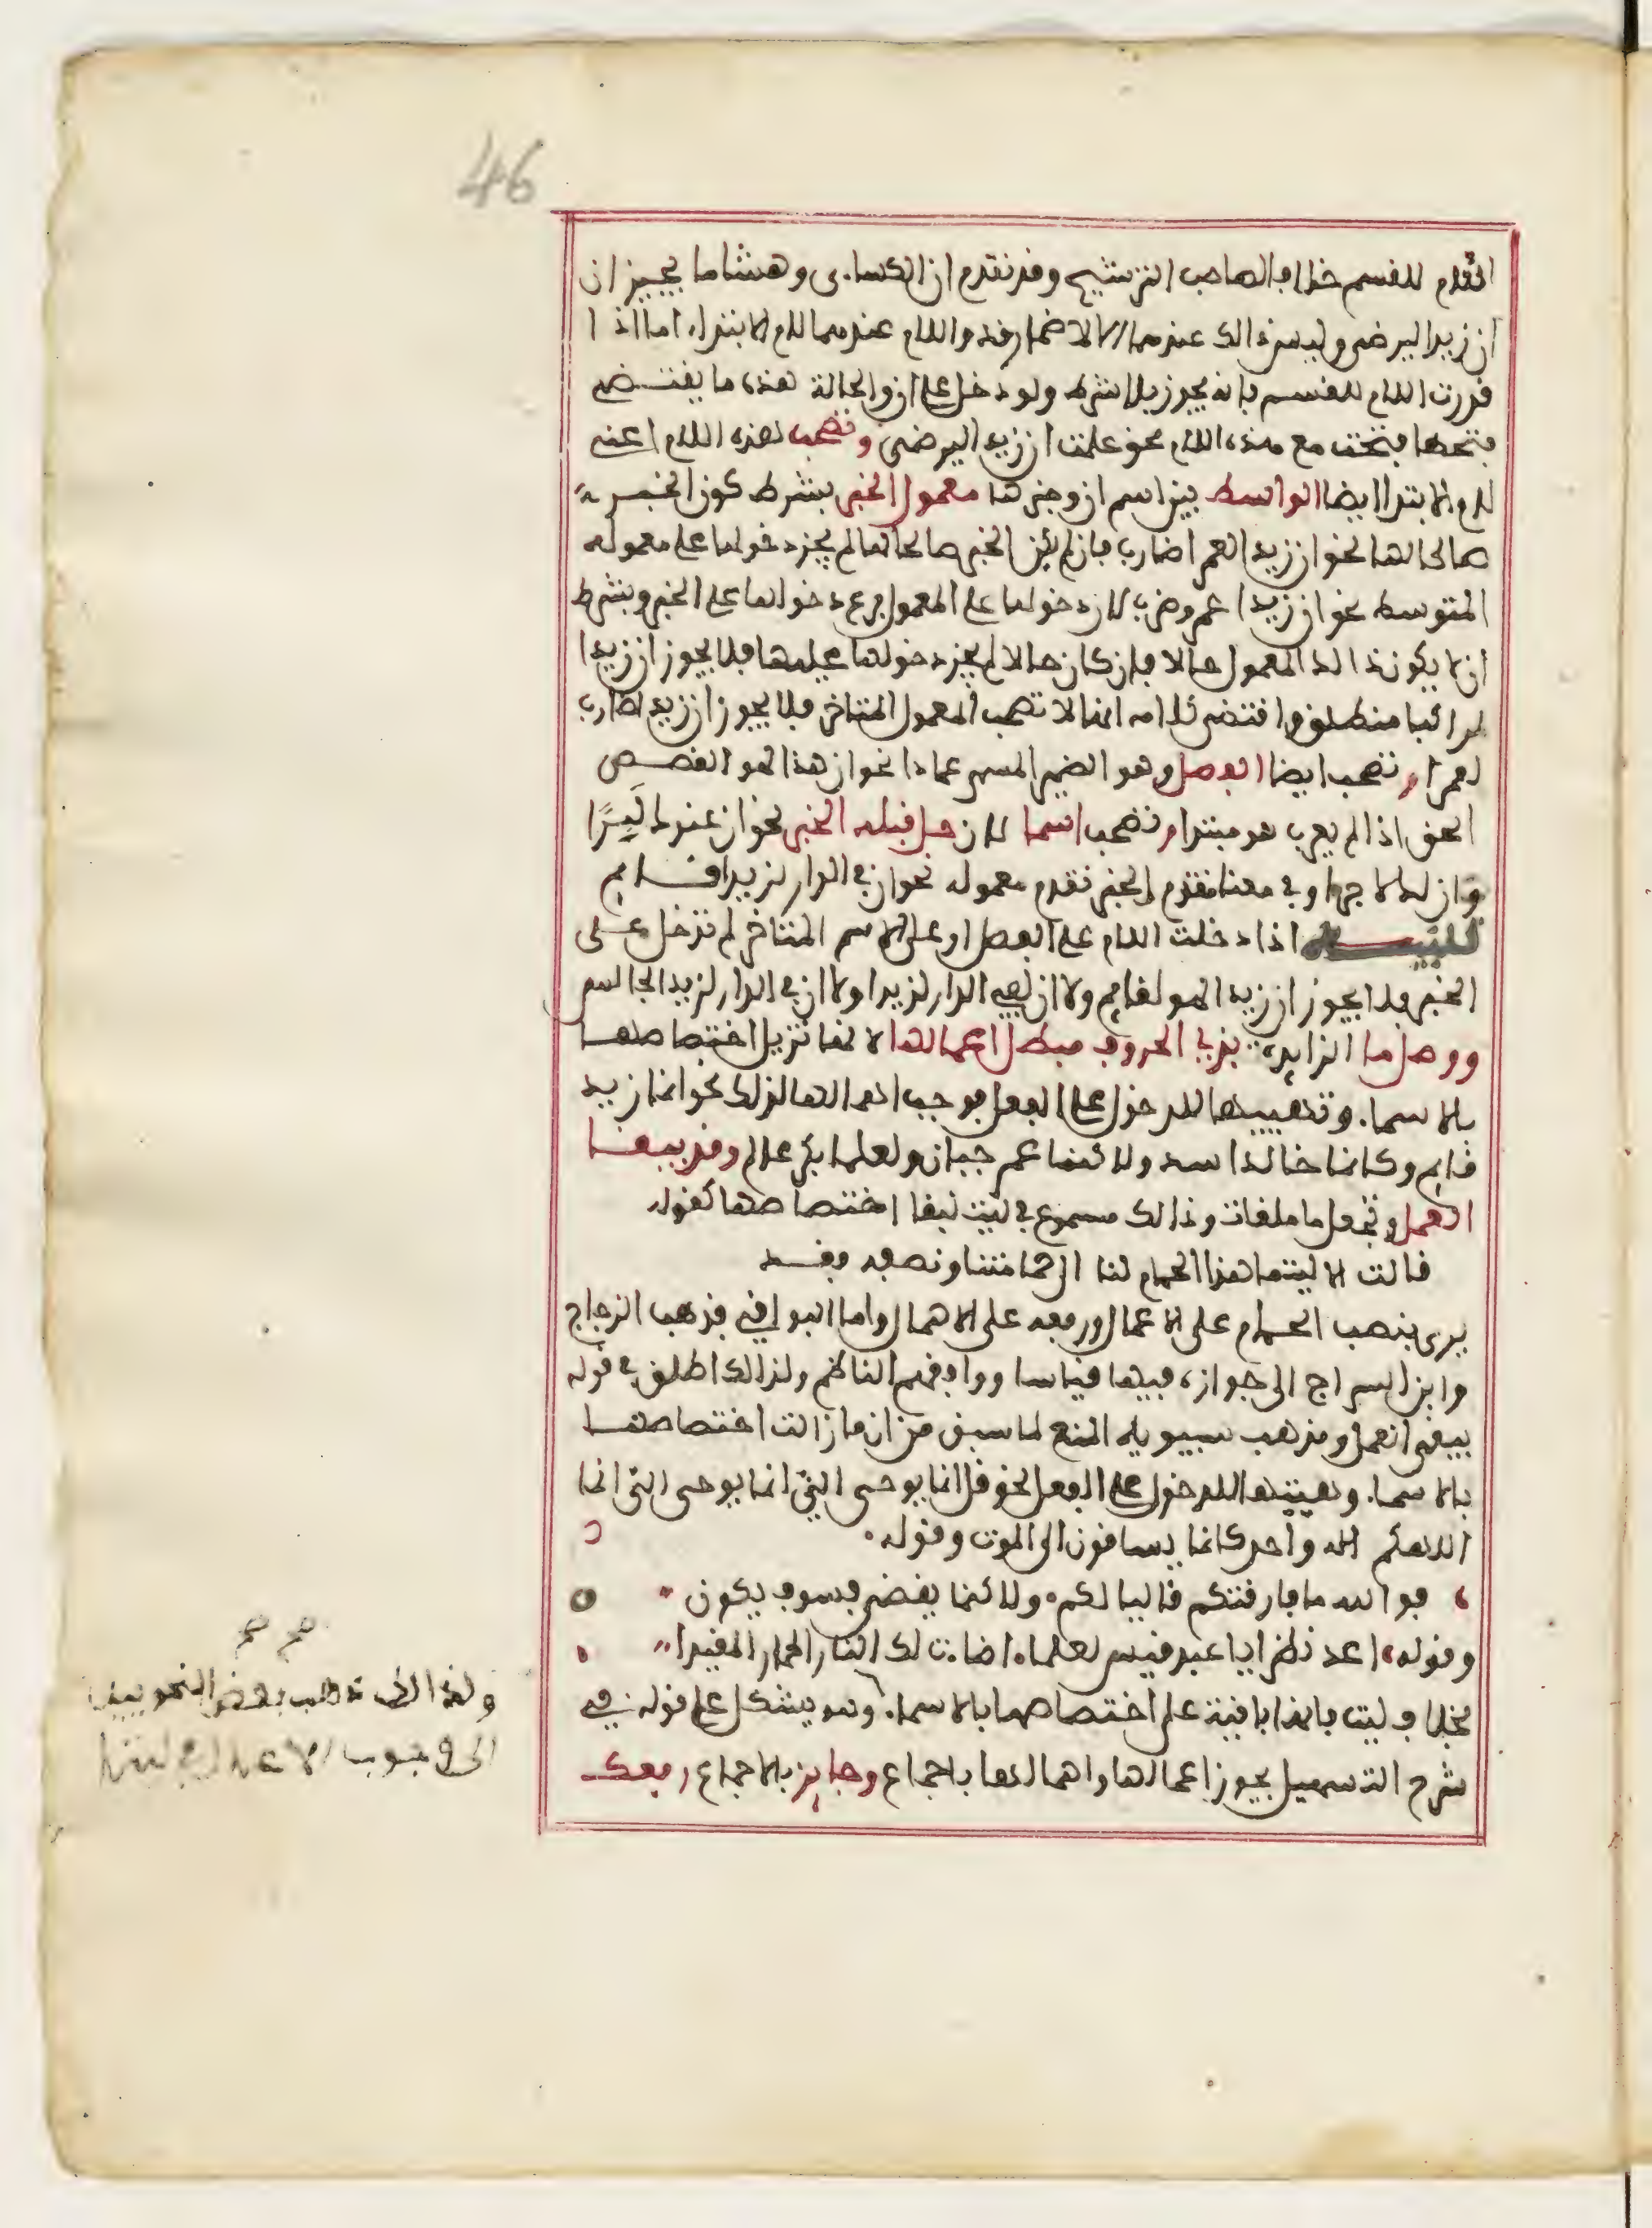 46
اللام للقسم خلافا لصاحب الترشيح وقد تقدم ان الكساءى وهشاما يجيزان
ان زيدا لرضى وليس ذالك عندهما الا لاضمار قد واللام عندهما لام الابتداء اما اذا
قدرت اللام للقسم فانه يجوز بلا شرط ولو دخل على ان والحالة هذه ما يقتضى
فتحها فتحت مع هذه اللام نحو علمت ان زيدا لرضى وتصحب هذه اللام اعنى
لام الابتدا ايضا الواسط بين اسم ان وخبرها معمول الخبر بشرط كون الخبر
صالحا لها نحو ان زيدا لعمرا ضارب فان لم يكن الخبر صالحا لها لم يجز دخولها على معموله
المتوسط نحو ان زيدا عمرا ضرب لان دخولها على المعمول فرع دخولها على الخبر وبشرط
ان لا يكون ذالك المعمول حالا فان كان حالا لم يجز دخولها عليها فلا يجوز ان زيدا
لراكبا منطلق واقتضى كلامه انها لا تصحب المعمول المتاخر فلا يجوز ان زيدا ضارب
لعمرا وتصحب ايضا الفصل وهو الضمير المسمى عمادا نحو ان هذا لهو القصص
الحق اذا لم يعرب هو مبتدا وتصحب اسما لان حل قبله الخبر نحو ان عندك لبرًا
وان لك لاجرا وفى معنا تقدم الخبر تقدم معموله نحو ان فى الدار لزيدا قايم
تنبيه اذا دخلت اللام على الفصل او على الاسم المتاخر لم تدخل على
الخبر فلا يجوز ان زيدا لهو لقايم ولا ان لفى الدار لزيدا ولا ان فى الدار لزيدا لجالس
ووصل ما الزايدة بذى الحروف مبطل اعمالها لانها تزيل اختصاصها
بالاسماء وتهييها للدخول على الفعل فوجب اهمالها لذلك نحو انما زيد
قايم وكانما خالد اسد ولاكنما عمر جبان ولعلما بكر عالم وقد يبقا
العمل وتجعل ما ملغاة وذالك مسموع فى ليت لبقا اختصاصها كقوله
قالت الا ليتما هذا الحمام لنا الى حمامتنا ونصفه فقد
يروى بنصب الحمام على الاعمال ورفعه على الاهمال واما البواقى فذهب الزجاج
وابن السراج الى جوازه فيها قياسا ووافقهم الناظم ولذالك اطلق فى قوله
يبقى العمل ومذهب سيبويه المنع لما سبق من ان ما ازالت اختصاصها
بالاسماء وهيتها للدخول على الفعل نحو قل انما يوحى الى انما يوحى الى انما
الاهكم اله واحد كانما يساقون الى الموت وقوله
فوالله ما فارقتكم قاليا لكم ولاكنما يقضى فسوف يكون
وقوله اعد نظرا يا عبد قيس لعلما اضاءت لك النار الحمار المقيدا
بخلاف ليت فانها باقية على اختصاصها بالاسماء وقد يشكل على قوله فى
شرح التسهيل يجوز اعمالها واهمالها باجماع وجايز بالاجماع رفعك
صح صح
ولهذا ذهب بعض النحويين
الى وجوب الاعمال فى ليتما